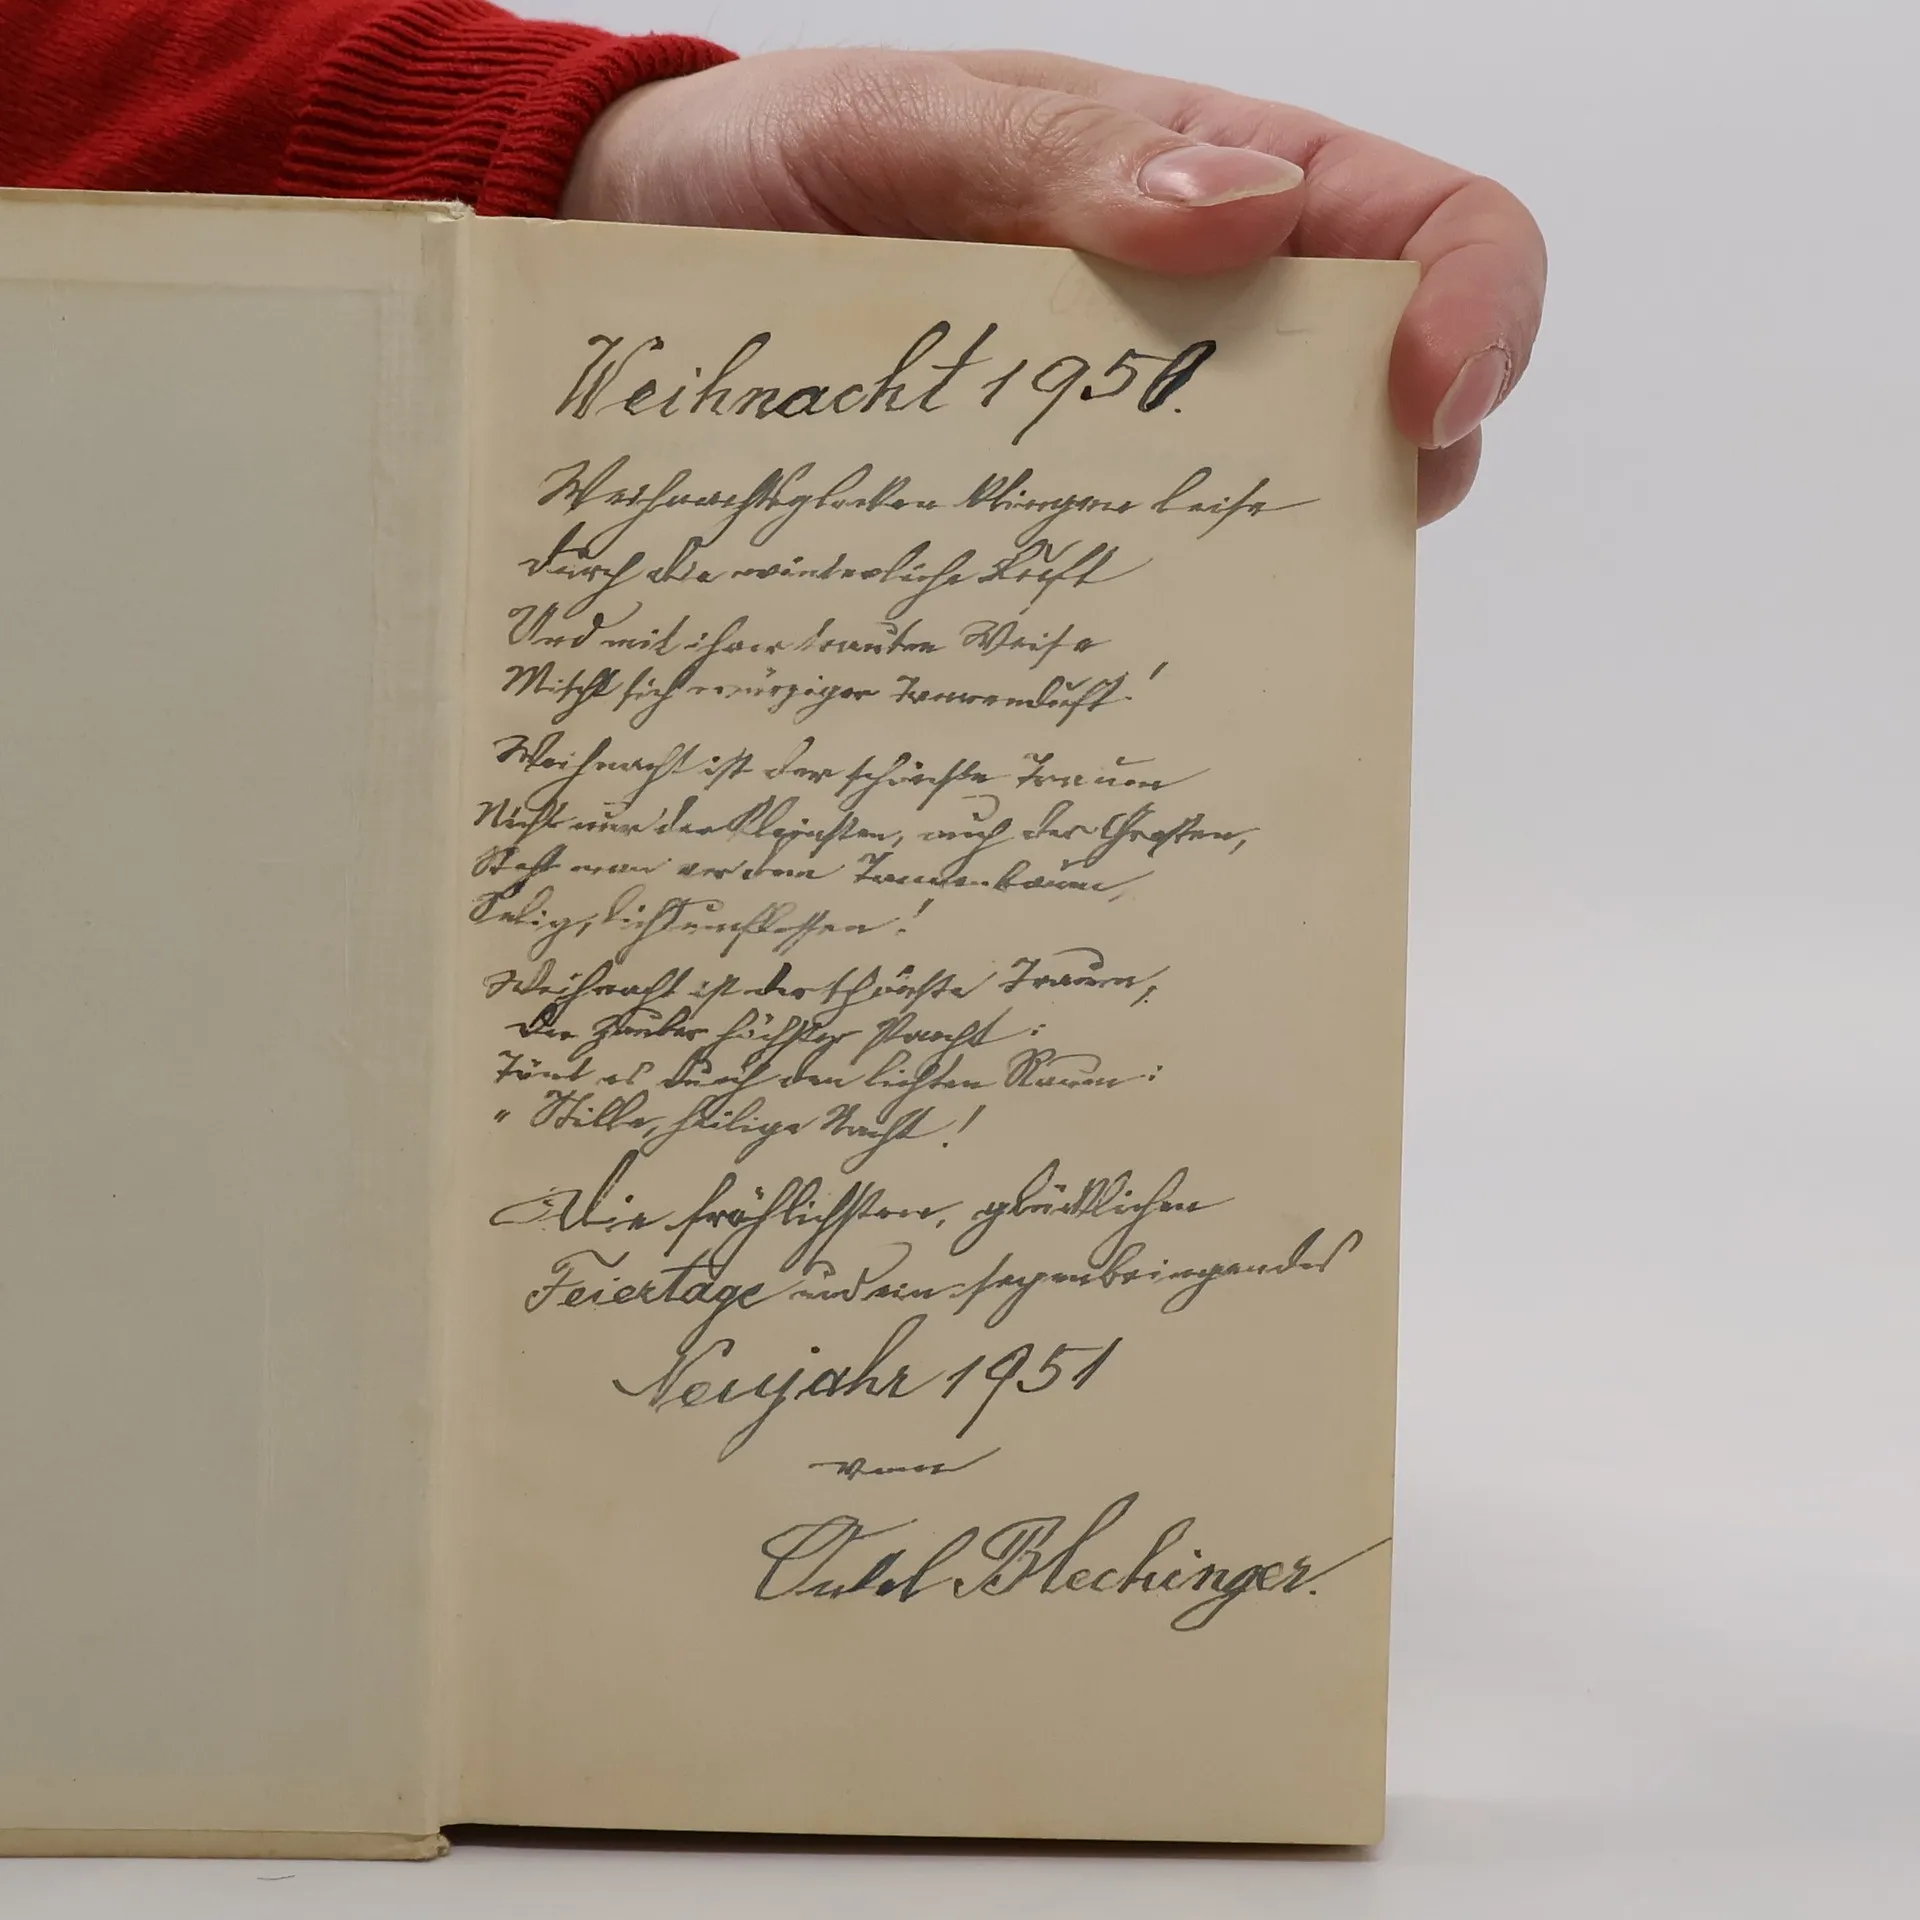 Weihnacht 1950.
Weihnachtsglocken klingen leise
durch die winterliche Luft
Und mit ihrer trauten Weise
Mischt sich würziger Tannenduft!
Weihnacht ist der schönste Traum
Nicht nur der Kleinsten, auch der Großen,
Steht man vor dem Tannenbaum,
Selig, lichtumflossen!
Weihnacht ist der schönste Traum,
Der Zauber höchster Pracht:
Tönt es durch den lichten Raum:
"Stille, heilige Nacht!
Die fröhlichsten, glücklichen
Feiertage und ein segenbringendes
Neujahr 1951
von
Blechinger.